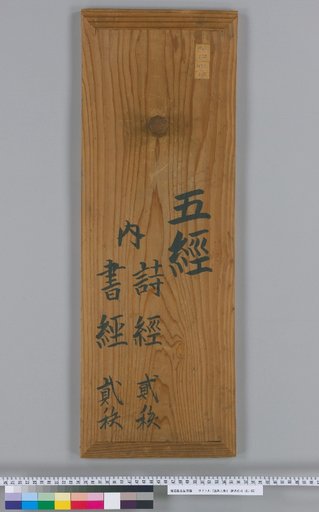 五經
内
詩經 貳秩
書經 貳秩